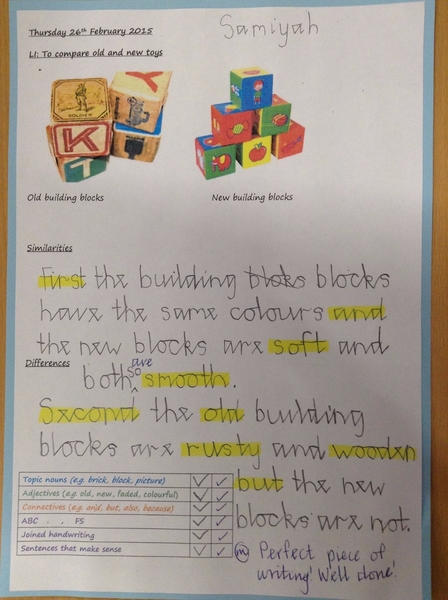 Samiyah
Thursday 26th February 2015
LI: To compare old and new toys
SOLDIER
Y
K
T
Old building blocks
New building blocks
Similarities
First the building bloks blocks
have the same colours and
the new blocks are soft and
Differences
both so are smooth.
Second the old building
blocks are rusty and wooden
but the new
blocks are not.
Topic nouns (e.g. brick, block, picture) ✓ ✓
Adjectives (e.g. old, new, faded, colourful) ✓ ✓
Connectives (e.g. and, but, also, because) ✓ ✓
ABC . , FS ✓ ✓
Joined handwriting ✓ ✓
Sentences that make sense ✓ ✓
m Perfect piece of
writing! Well done!